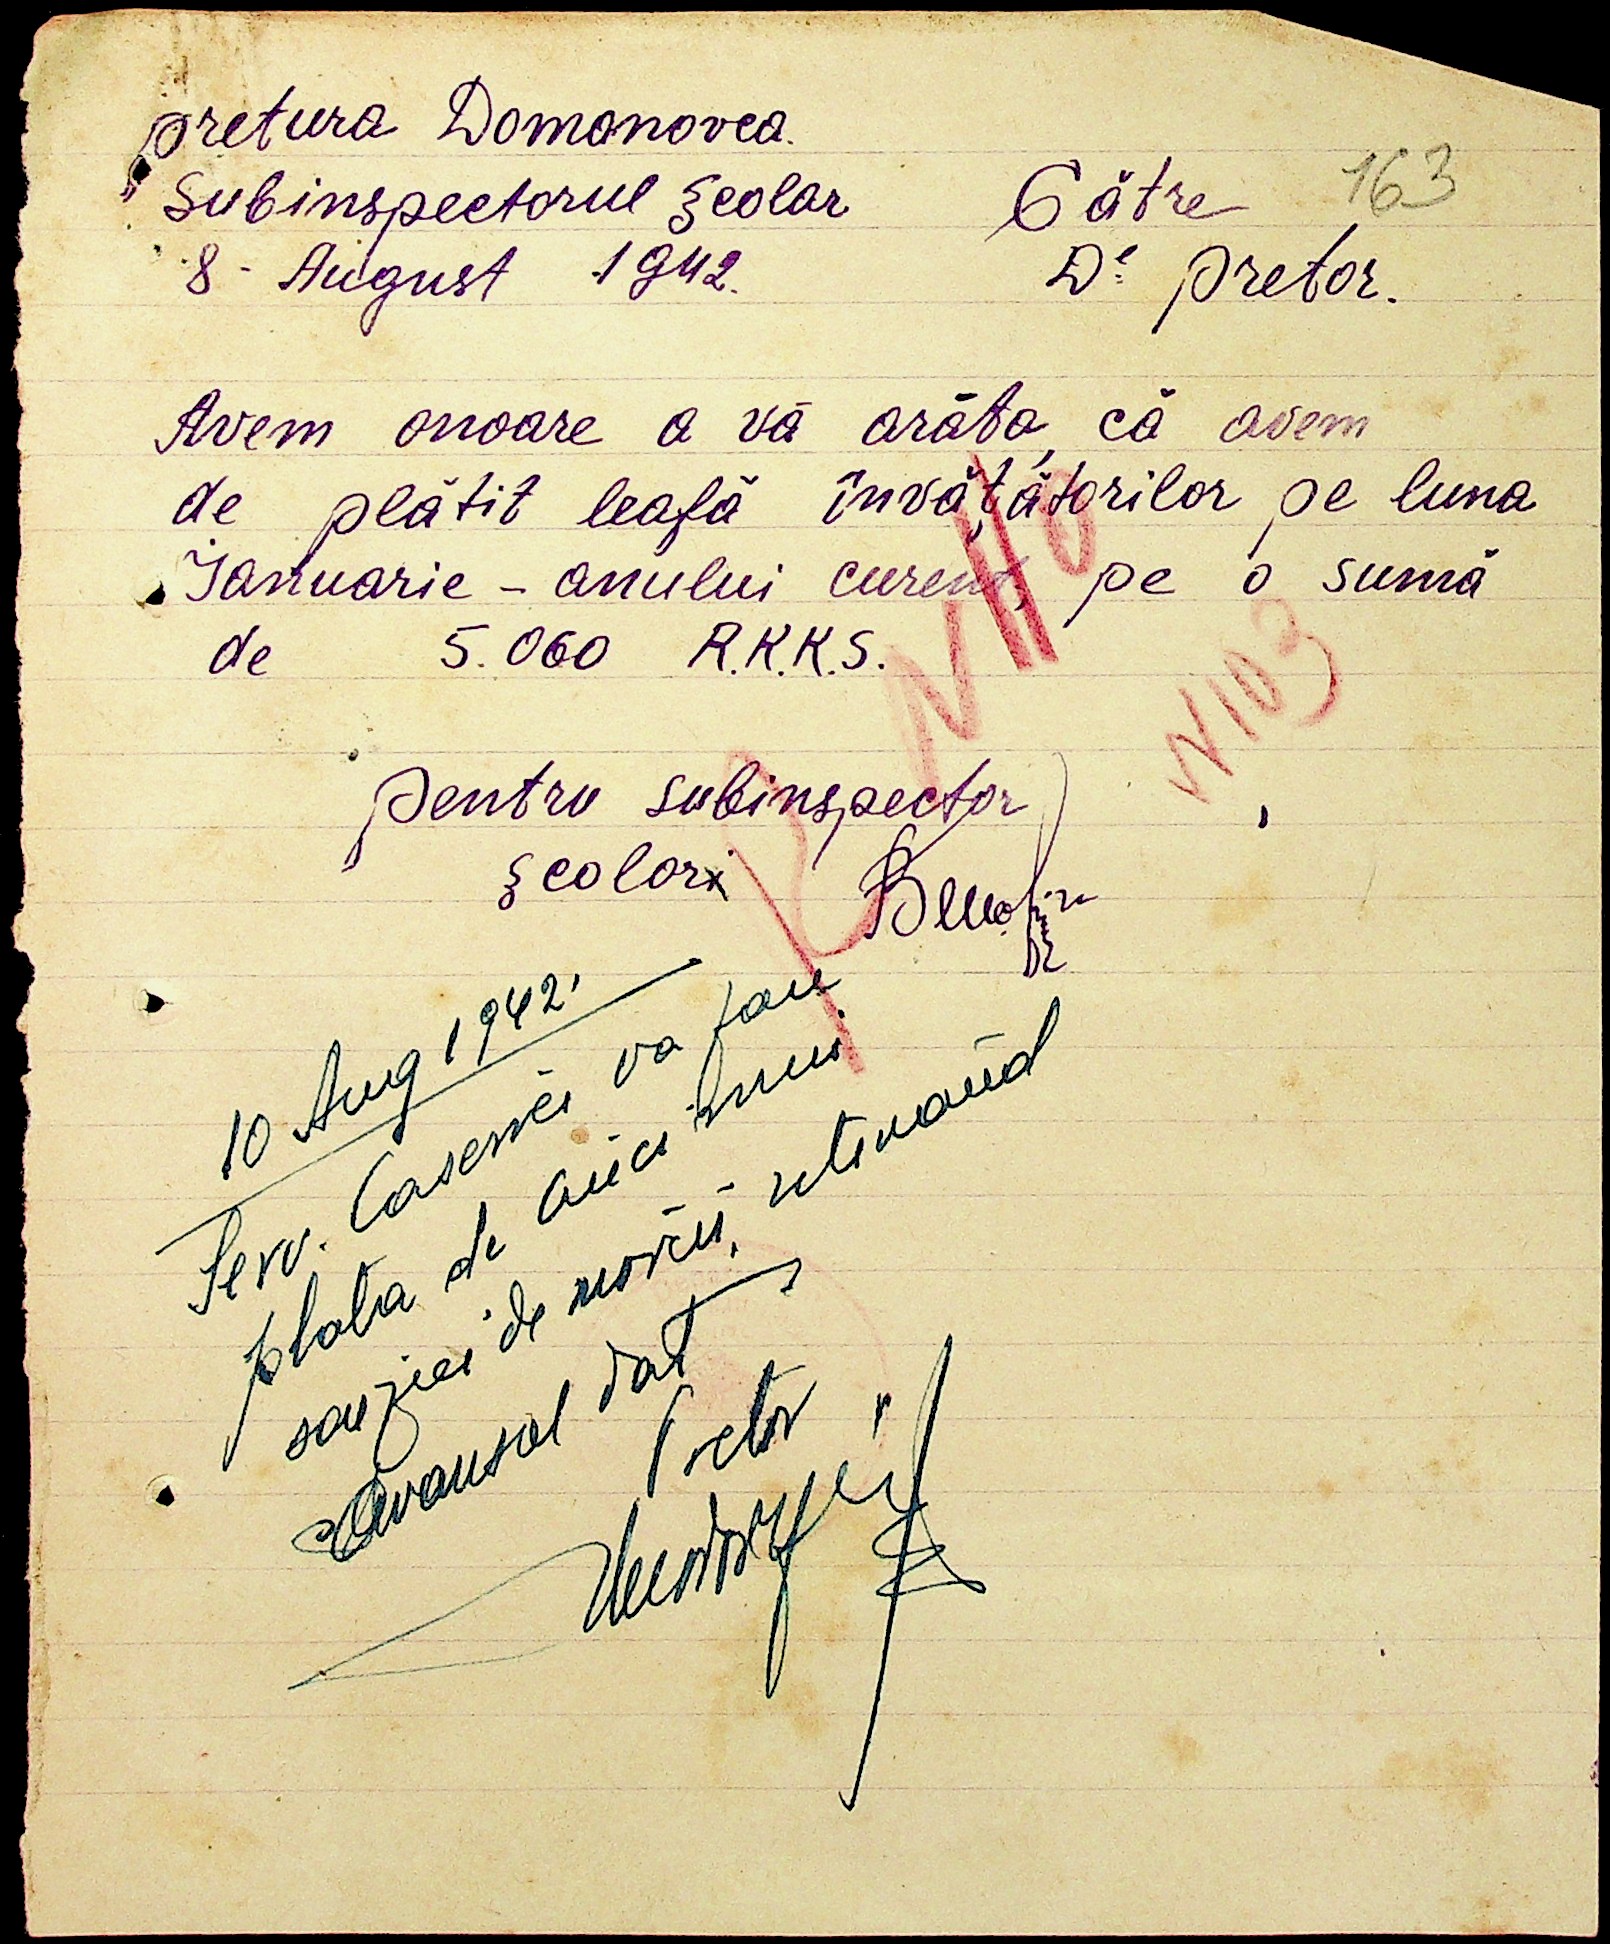 Pretura Domanovca.
Subinspectorul Școlar
8 - August 1942.
163
Către
Dl pretor.
Avem onoare a vă arăta, că avem
de plătit leafă învățătorilor pe luna
Ianuarie - anului curent, pe o sumă
de 5.060 R.K.K.S.
N 110
N 103
pentru subinspector
școlar
10 Aug 1942.
Serv. Casieriei va face
plata de aici
de
avansul dat
Pretor